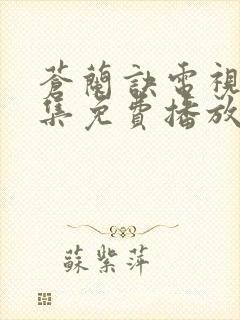 蒼蘭訣電視
集免費播放
蘇紫萍